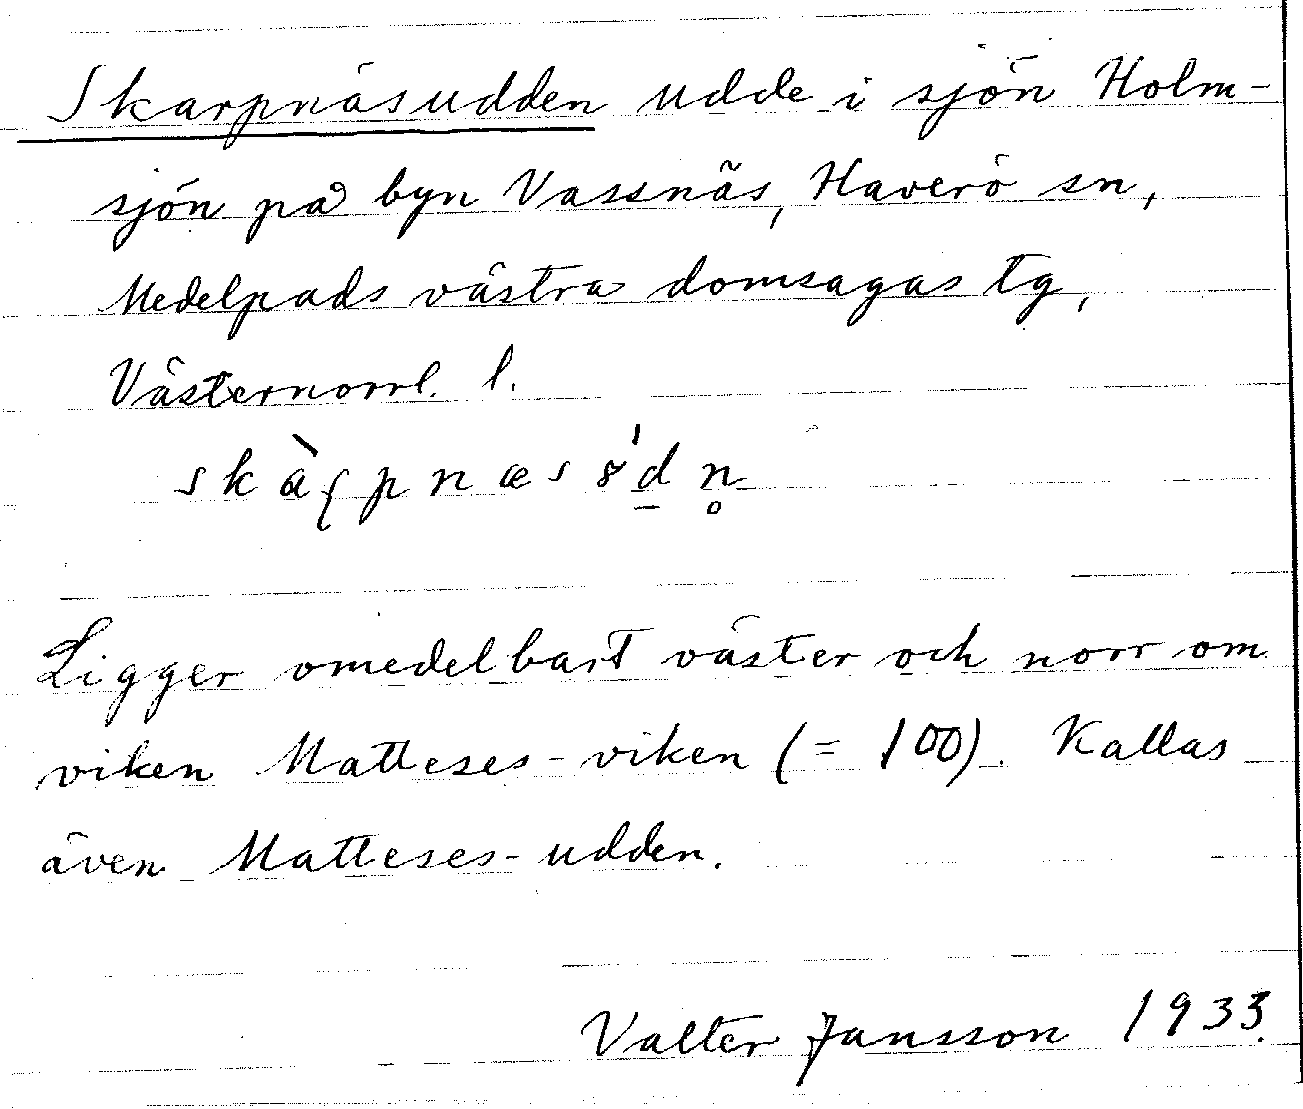 Skarpnäsudden udde i sjön Holm-
sjön på byn Vassnäs, Haverö sn,
Medelpads västra domsagas tg,
Västernorrl. l.
Ligger omedelbart väster och norr om
viken Matteses-viken (= 100). Kallas
även Matteses-udden.
Valter Jansson 1933.